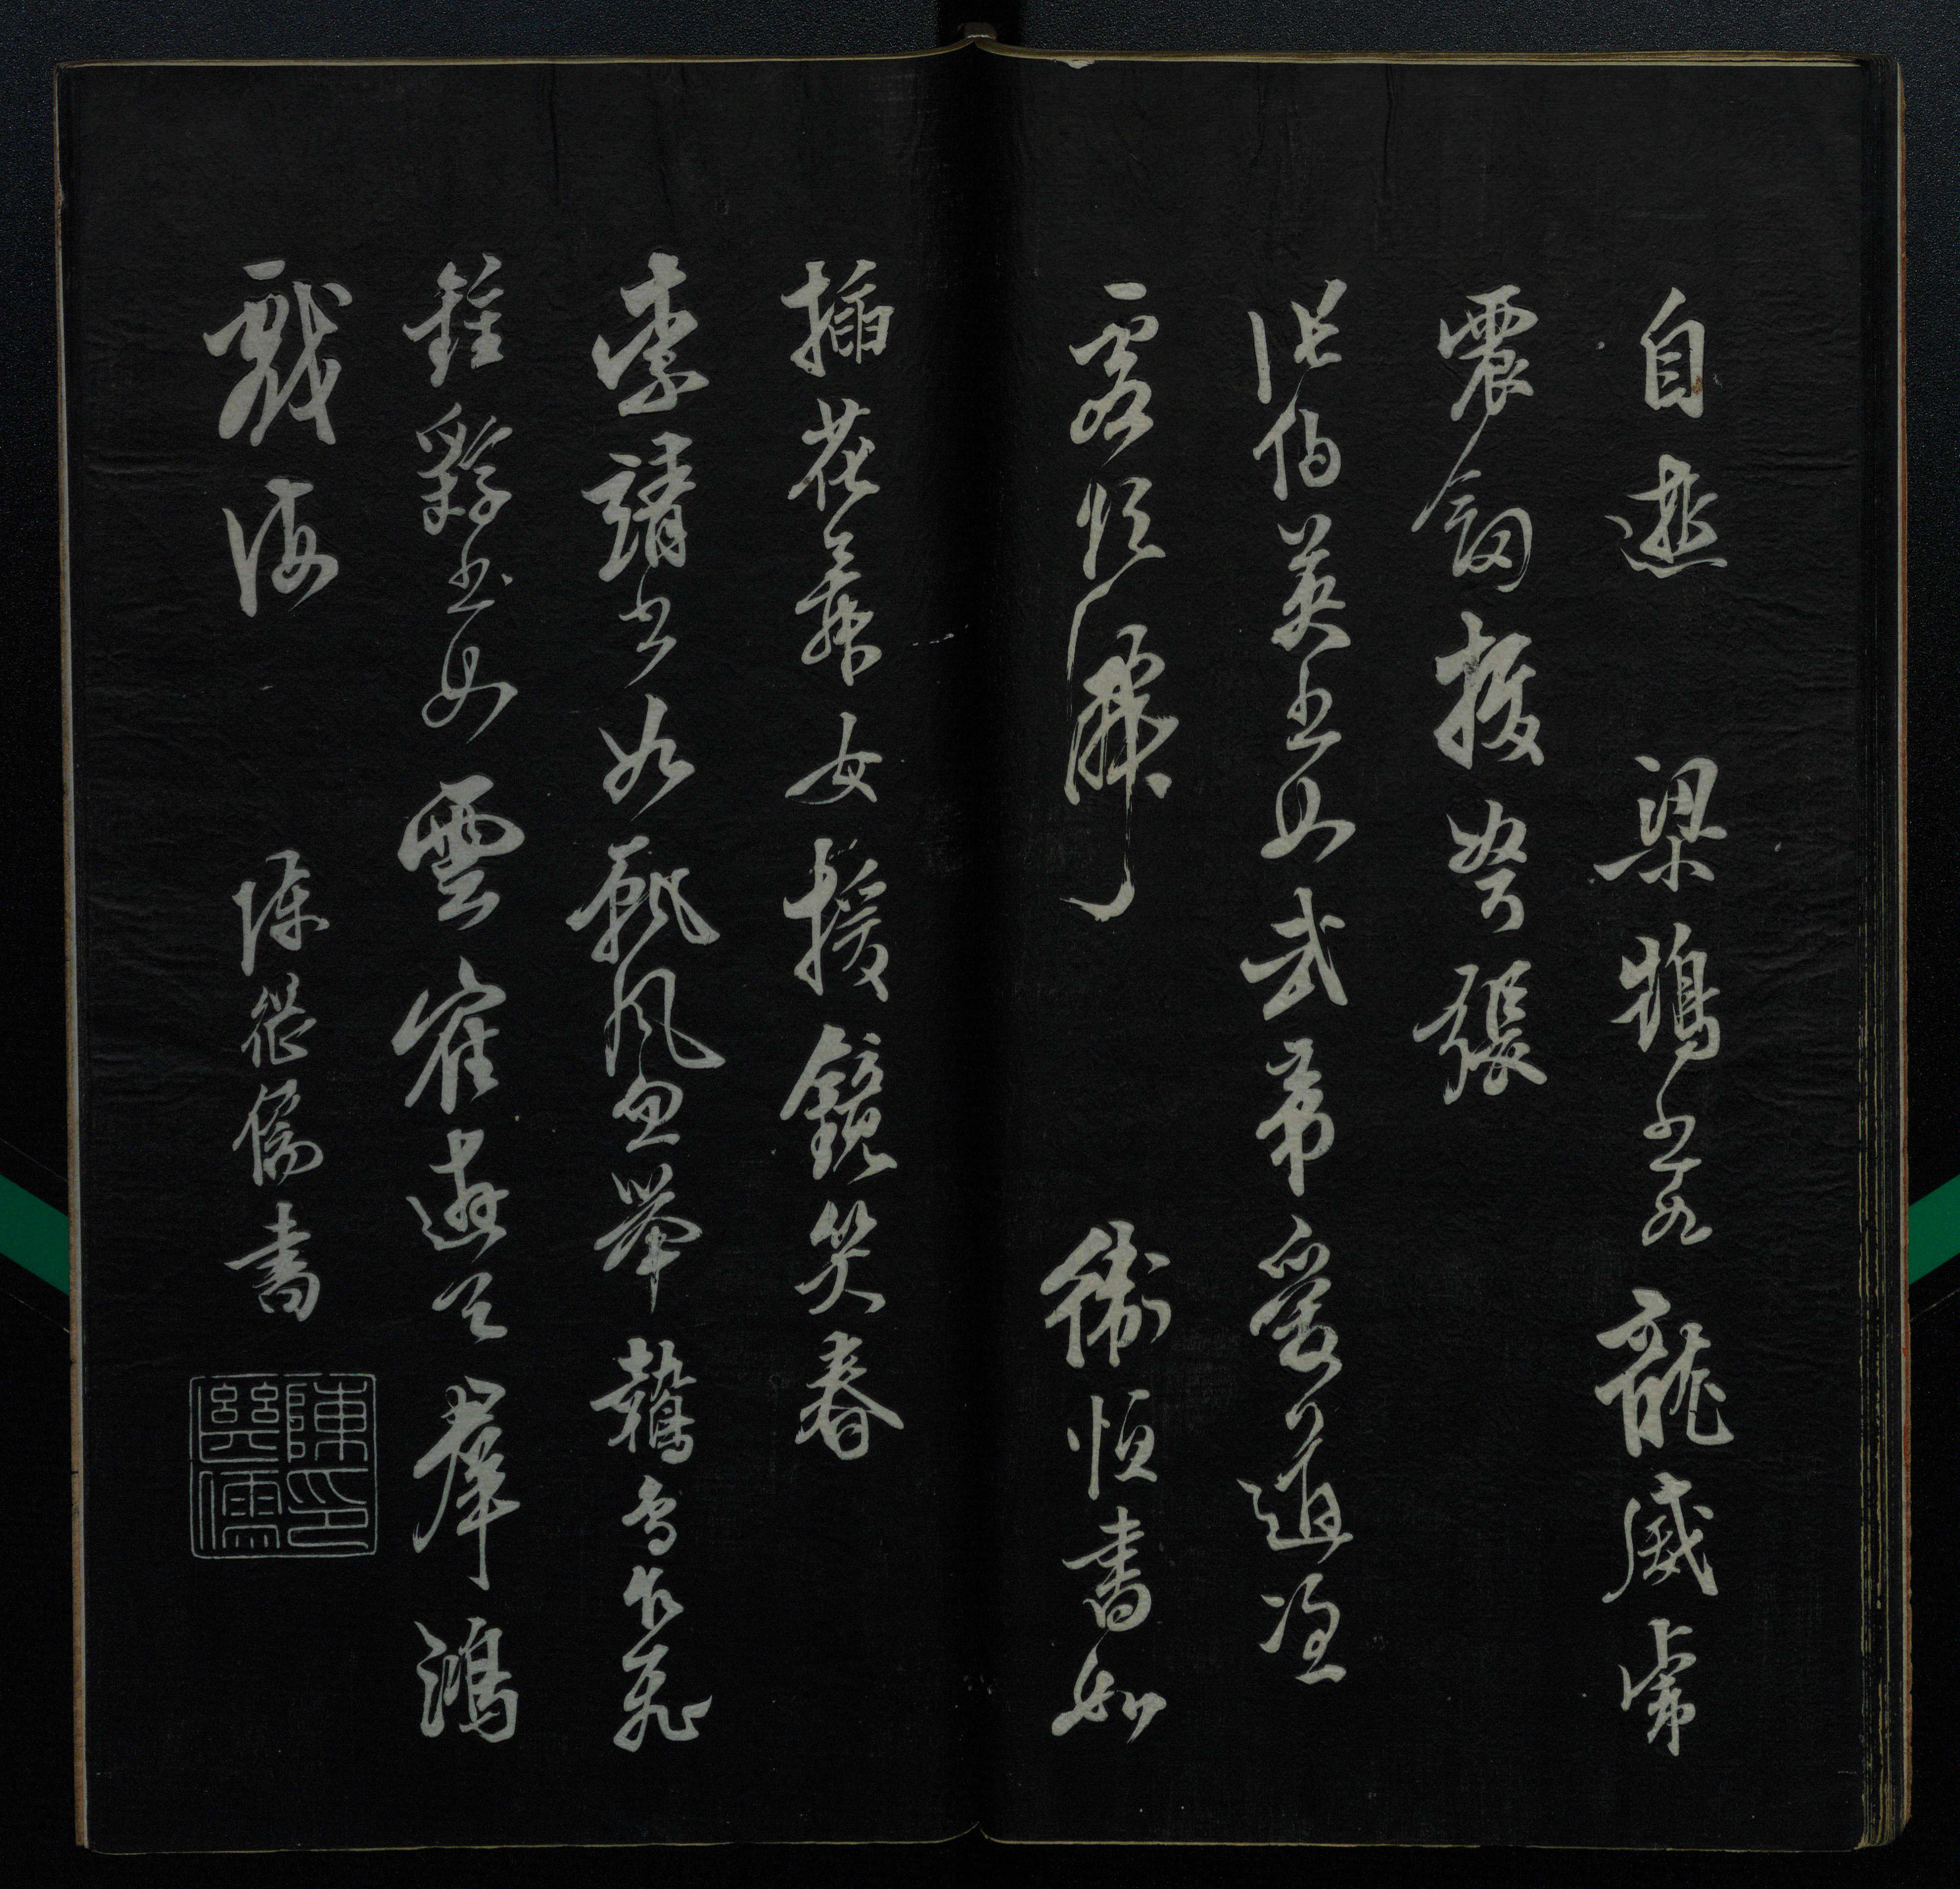 自逝　梁鵠書若龍威虎
震劍拔弩張
張伯英書如武帝愛道憑
衛恒書如
插花舞女援鏡笑春
索靖書如飄風忽舉鷙鳥乍飛
鍾繇書如雲寉遊天羣鴻
戲海　陳繼儒書
陳印繼儒